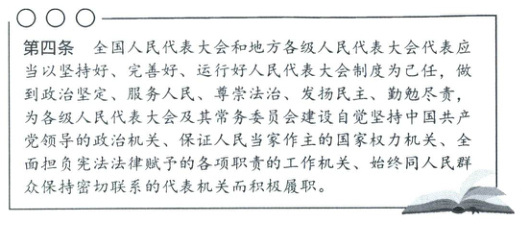 第四条 全国人民代表大会和地方各级人民代表大会代表应
当以坚持好、完善好、运行好人民代表大会制度为己任，做
到政治坚定、服务人民、尊崇法治、发扬民主、勤勉尽责，
为各级人民代表大会及其常务委员会建设自觉坚持中国共产
党领导的政治机关、保证人民当家作主的国家权力机关、全
面担负宪法法律赋予的各项职责的工作机关、始终同人民群
众保持密切联系的代表机关而积极履职。